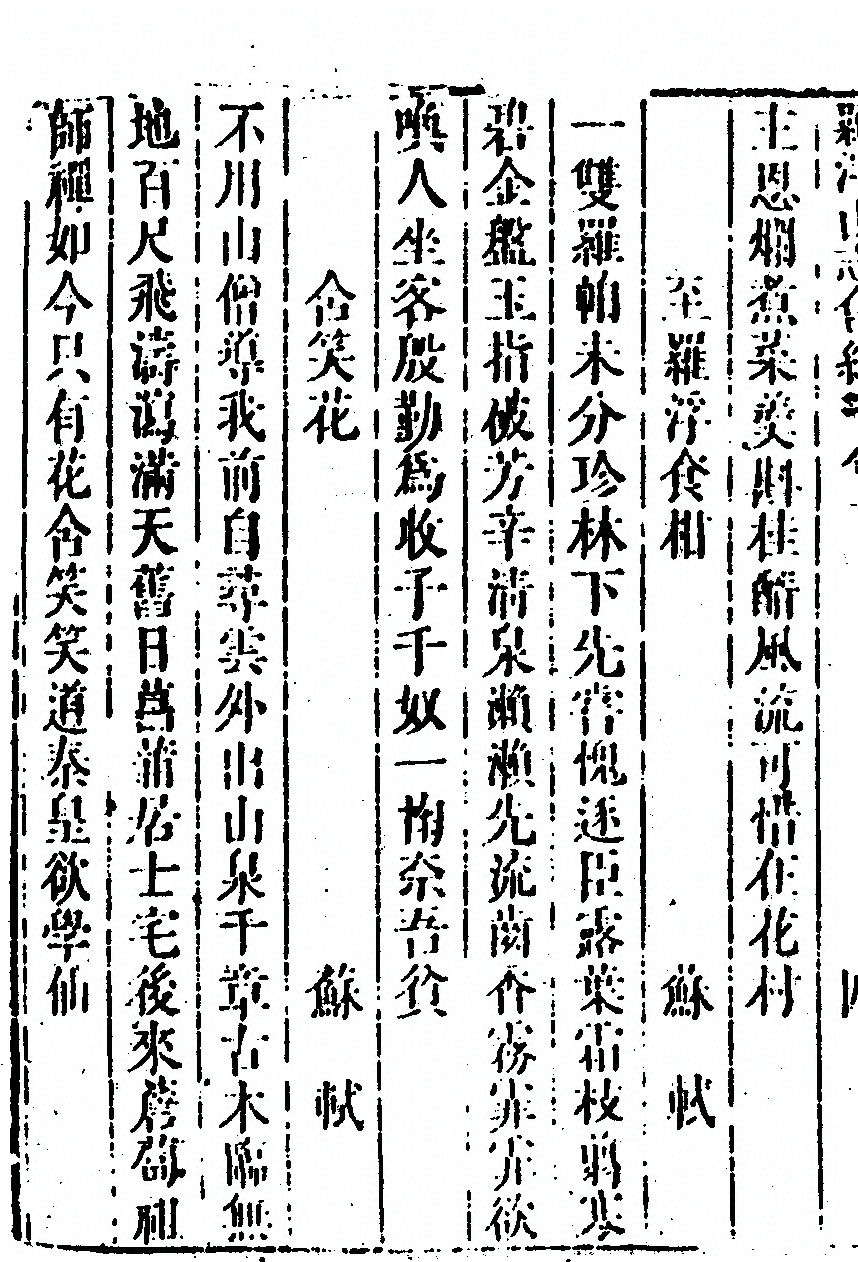 主恩爛煮菜羮斟桂醑風流可惜在花村
至羅浮食柑　蘇軾
一雙羅帕未分珍林下先嘗愧逐臣露葉霜枝剪寒
碧金盤玉指破芳辛清泉瀨瀨先流齒香霧霏霏欲
噀人坐客殷勤爲收子千奴一掬奈吾貧
含笑花　蘇軾
不用山僧導我前自尋雲外出山泉千章古木臨無
地百尺飛濤瀉滿天舊日菖蒲居士宅後來薝蔔祖
師禪如今只有花含笑笑道秦皇欲學仙